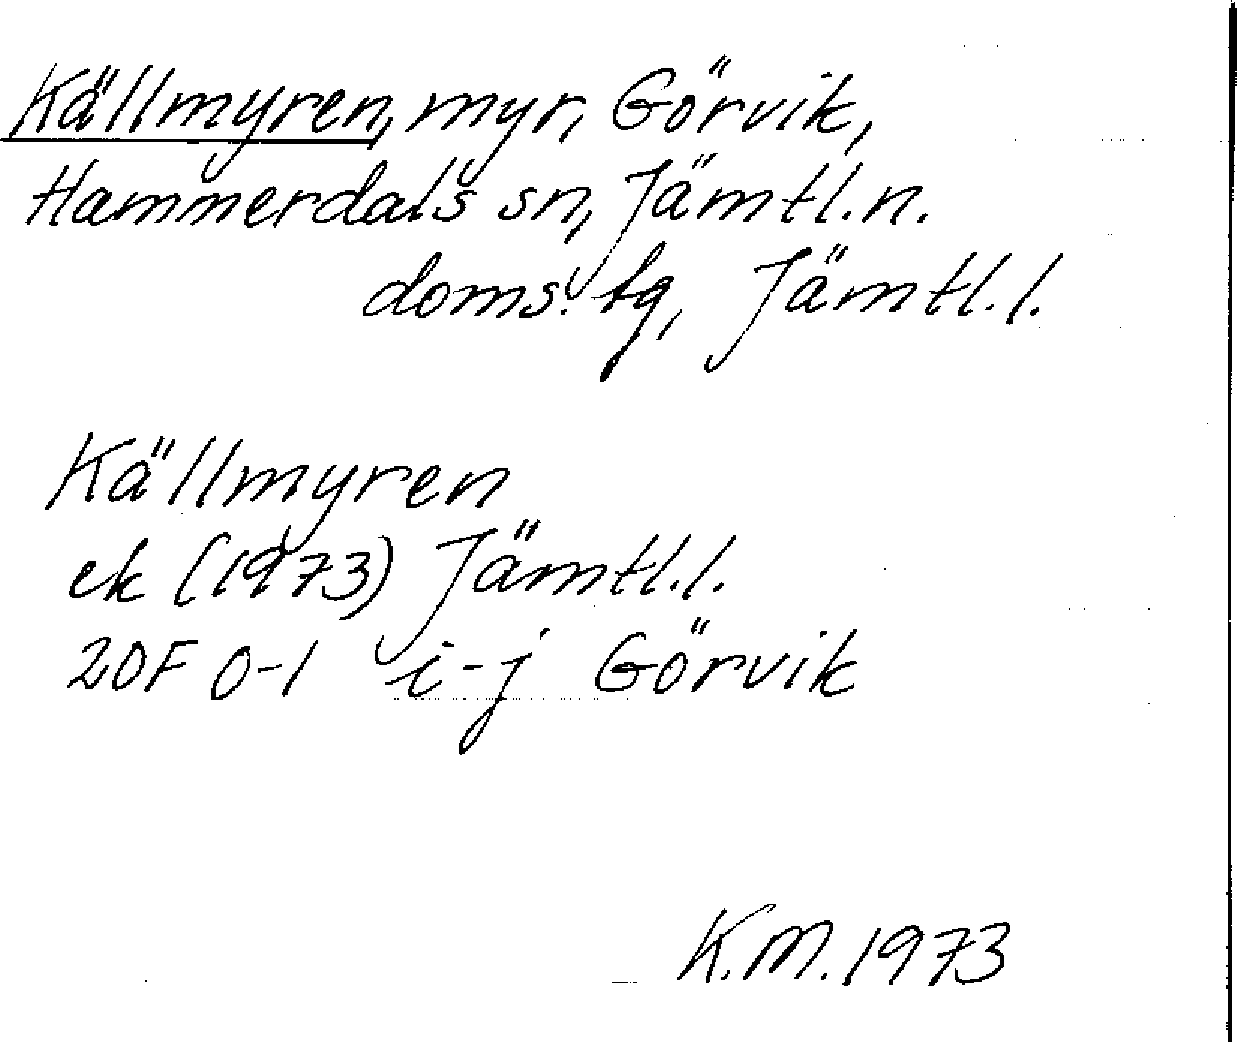 Källmyren, myr, Görvik,
Hammerdals sn, Jämtl.n.
doms. tg, Jämtl.l.
Källmyren
ek (1973) Jämtl.l.
20F 0-1 i-j Görvik
K.M. 1973